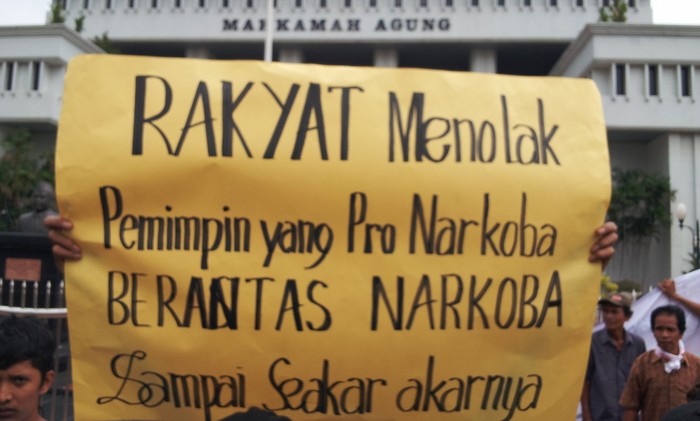 MAHKAMAH AGUNG
RAKYAT Menolak
Pemimpin yang Pro Narkoba
BERANTAS NARKOBA
Sampai Seakar akarnya